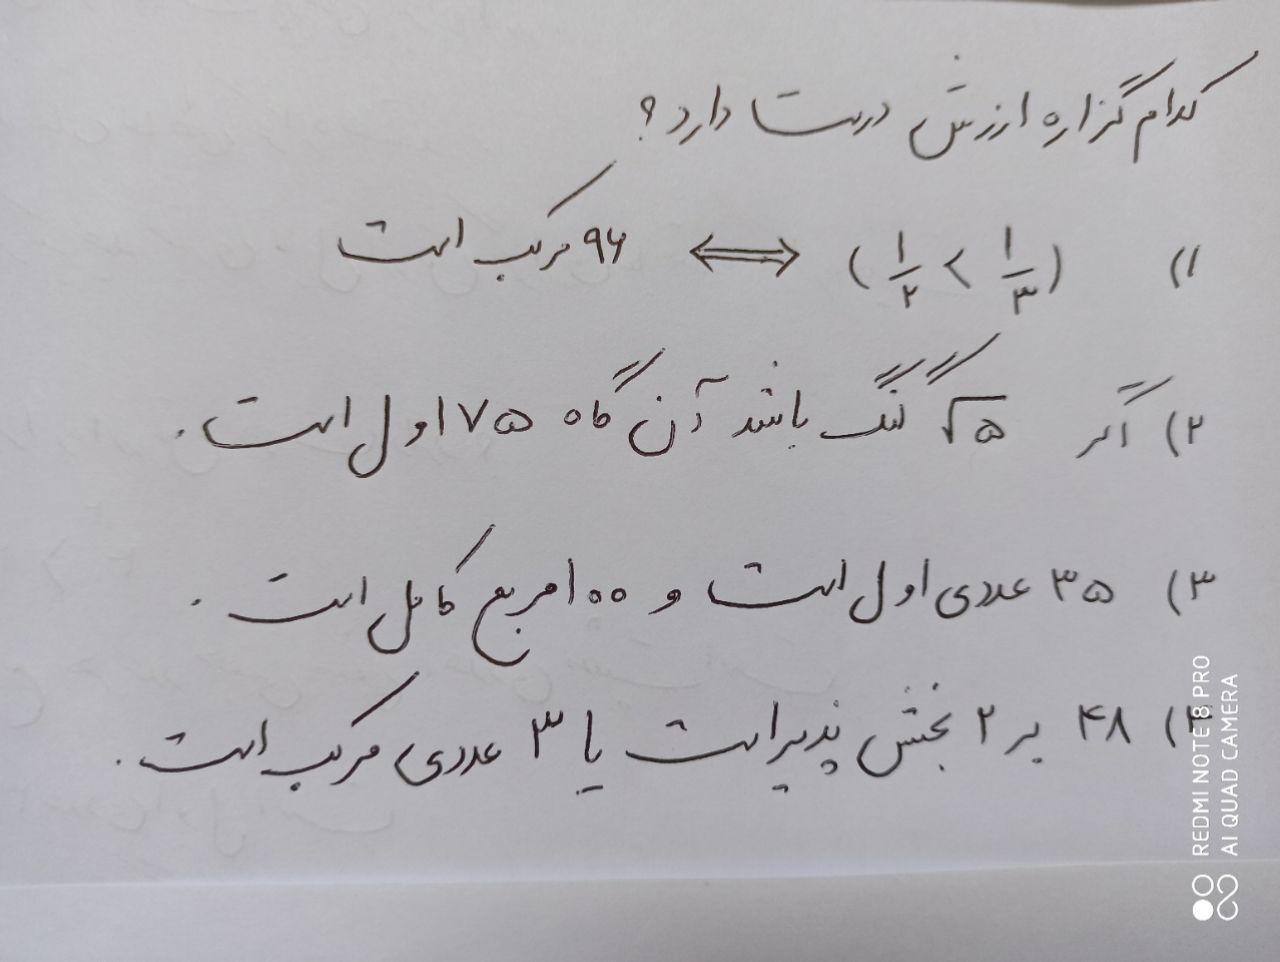 کدام گزاره ارزش درست دارد ؟
۱) (۱/۲ < ۱/۳) ⟺ ۹۶ مرکب است
۲) اگر √۵ گنگ باشد آن گاه ۷۵ اول است.
۳) ۳۵ عددی اول است و ۱۰۰ مربع کامل است.
۴) ۴۸ بر ۲ بخش پذیر است یا ۳ عددی مرکب است.
REDMI NOTE 8 PRO
AI QUAD CAMERA